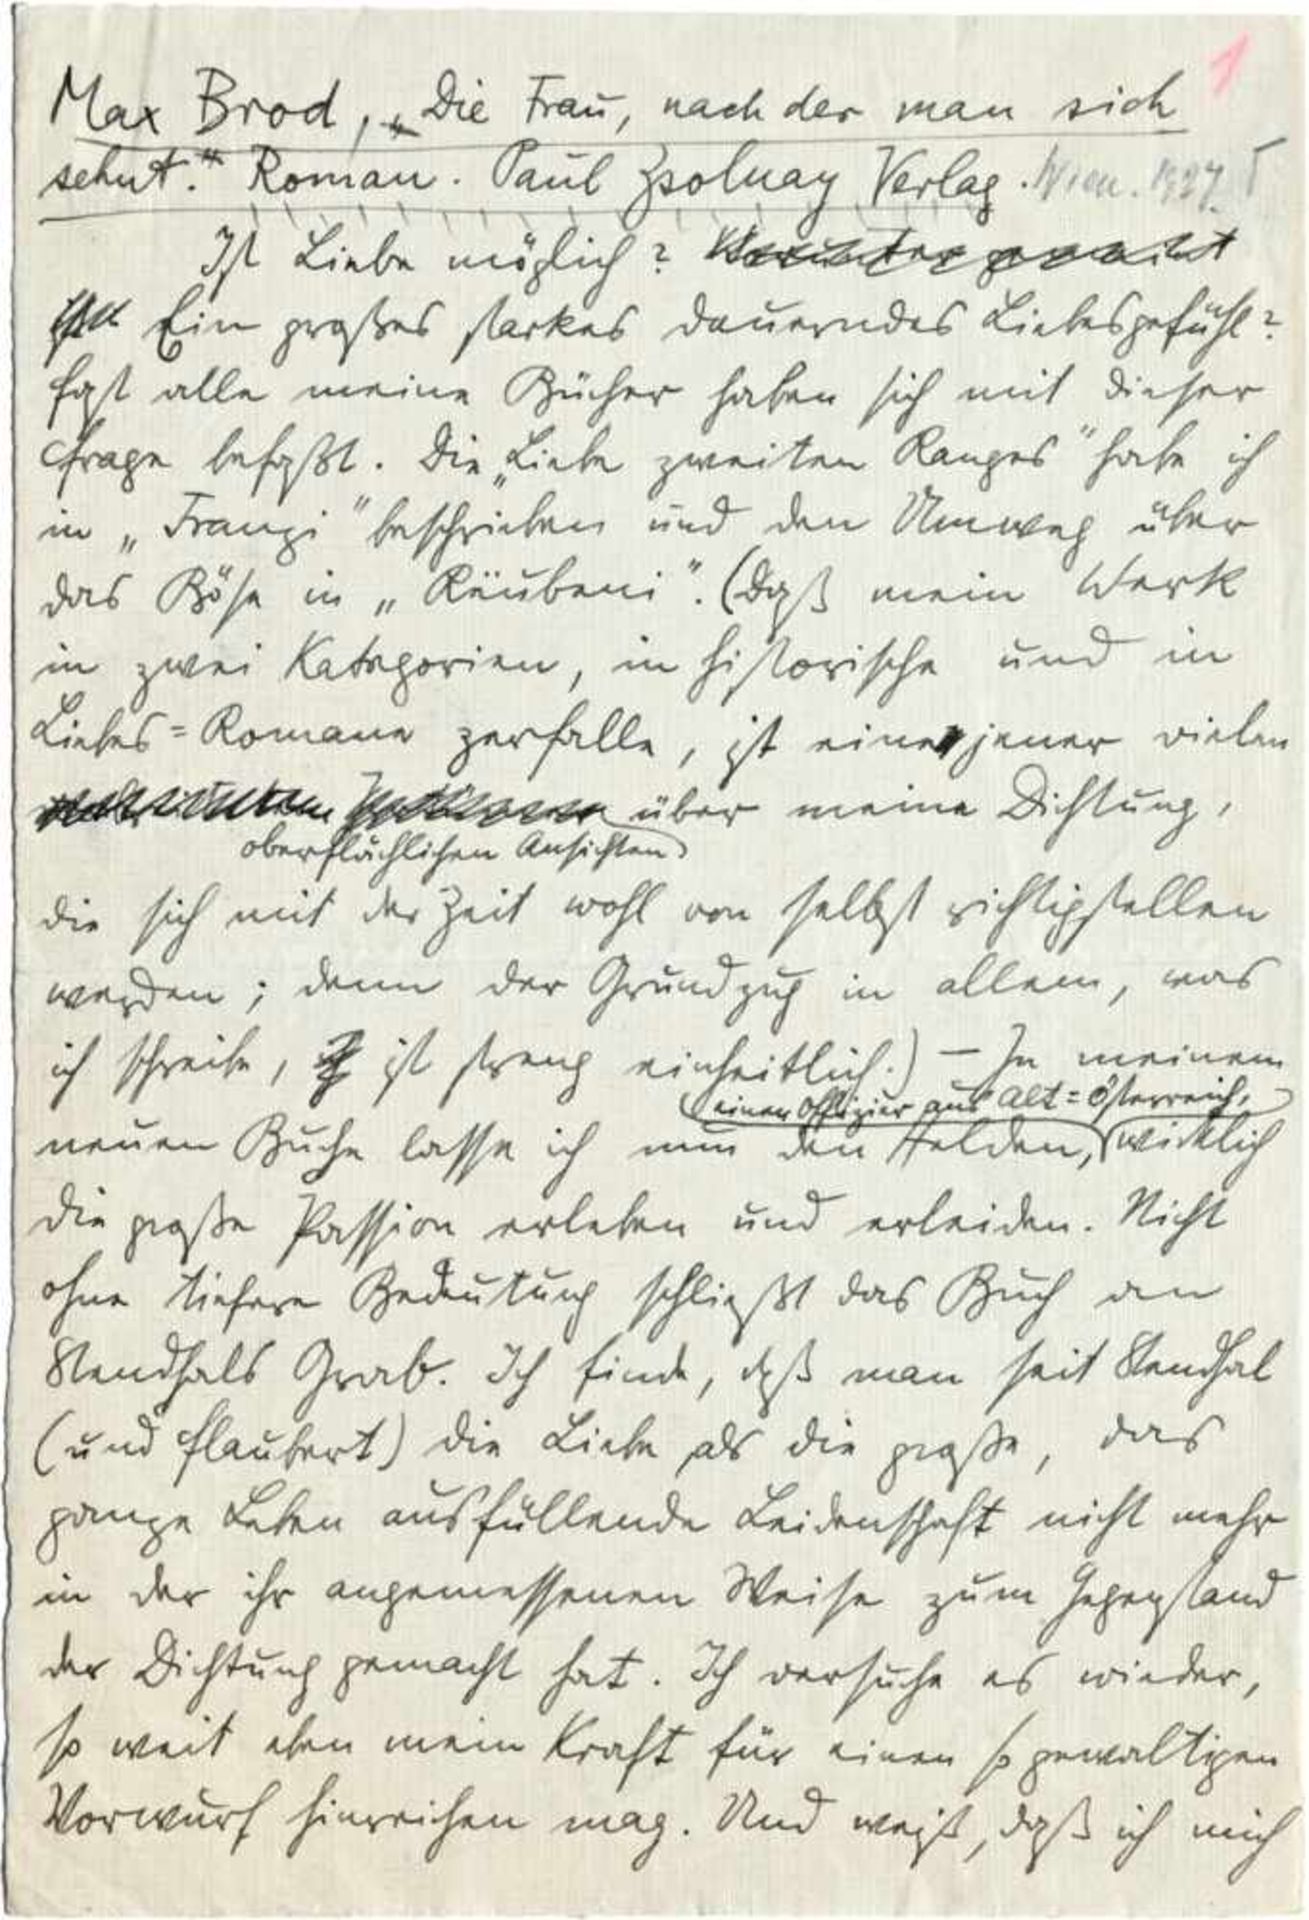 1
Max Brod, „Die Frau, nach der man sich
sehnt." Roman. Paul Zsolnay Verlag. Wien. 1927.
Ist Liebe möglich?
Ein großes starkes dauerndes Liebesgefühl?
Fast alle meine Bücher haben sich mit dieser
Frage befaßt. Die „Liebe zweiten Ranges" habe ich
in „Franzi" beschrieben und den Umweg über
das Böse in „Rëubeni". (Daß mein Werk
in zwei Kategorien, in historische und in
Liebes=Romane zerfalle, ist eine jener vielen
über meine Dichtung,
oberflächlichen Ansichten
die sich mit der Zeit wohl von selbst richtigstellen
werden; denn der Grundzug in allem, was
ich schreibe, ist streng einheitlich.) – In meinem
einen Offizier aus Alt=Österreich,
neuen Buche lasse ich nun den Helden, wirklich
die große Passion erleben und erleiden. Nicht
ohne tiefere Bedeutung schließt das Buch an
Stendhals Grab. Ich finde, daß man seit Stendhal
(und Flaubert) die Liebe als die große, das
ganze Leben ausfüllende Leidenschaft nicht mehr
in der ihr angemessenen Weise zum Gegenstand
der Dichtung gemacht hat. Ich versuche es wieder,
so weit eben mein Kraft für einen so gewaltigen
Vorwurf hinreichen mag. Und weiß, daß ich mich